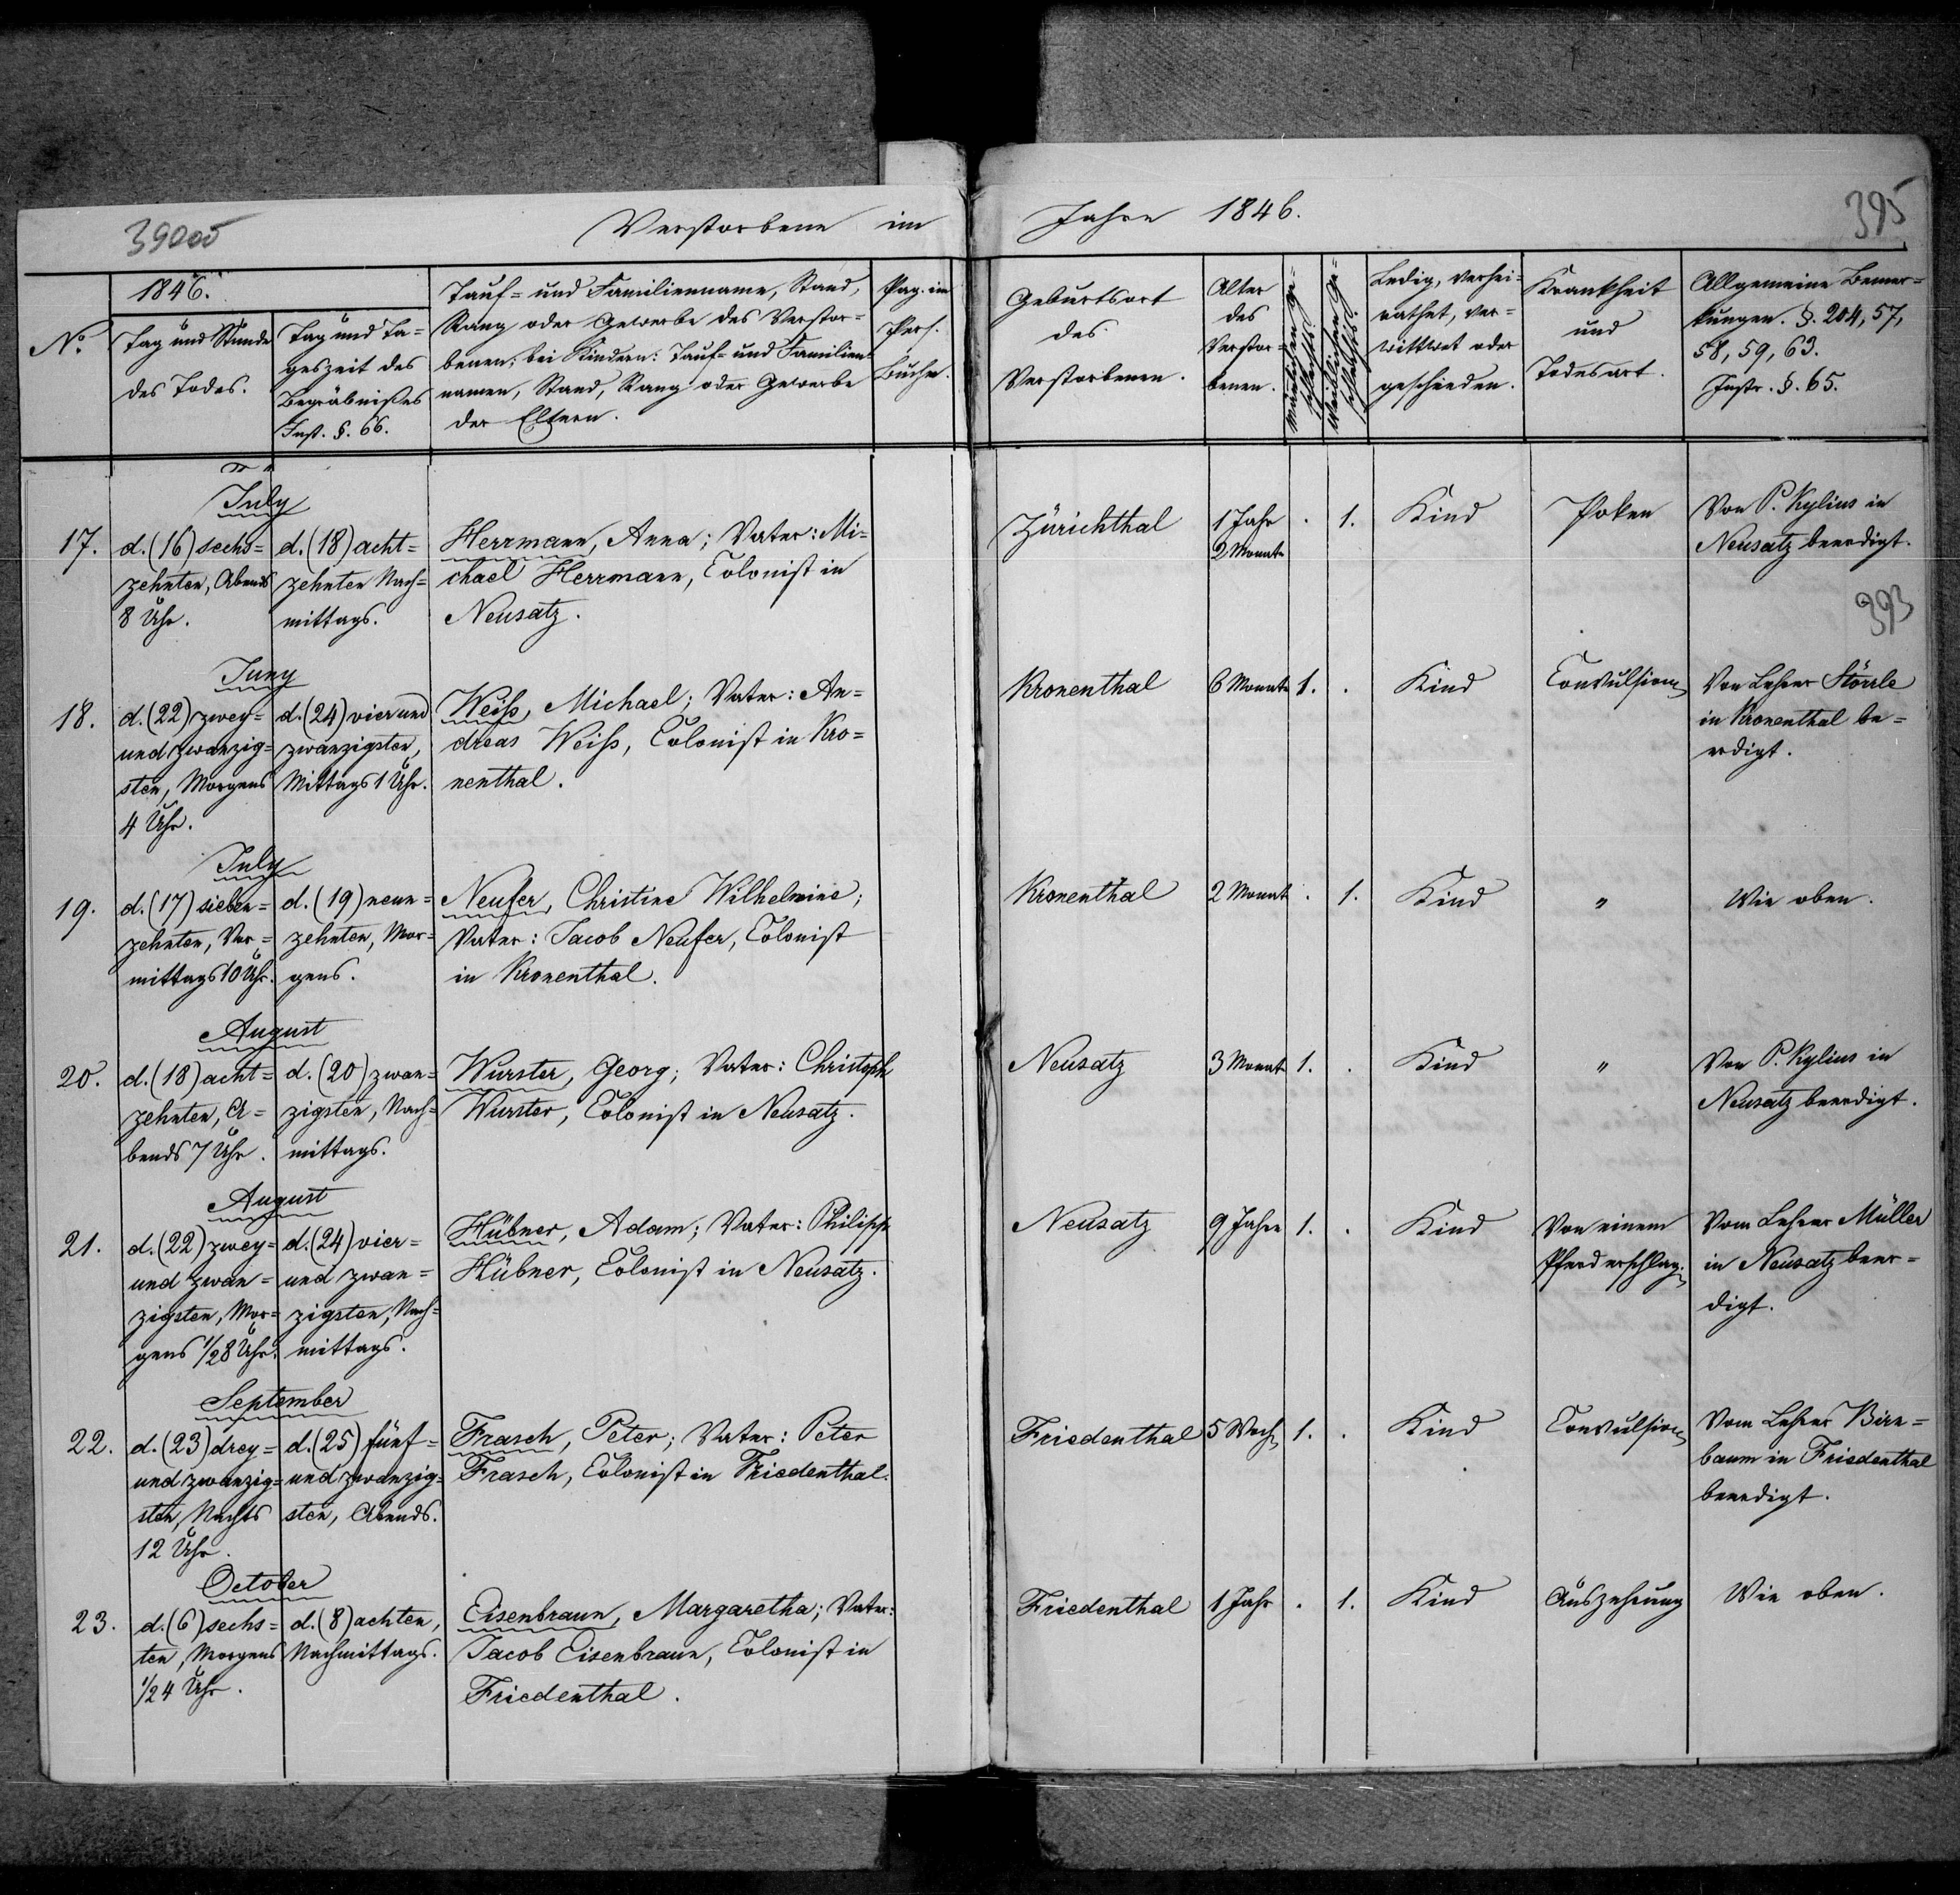 390oo
Verstorbene im Jahre 1846.
395
No.
1846.
Tag und Stunde
des Todes.
Tag und Ta=
geszeit des
Begräbnißes
Inst. §. 66.
Tauf= und Familienname, Stand,
Rang oder Gewerbe des Verstor=
benen; bei Kindern: Tauf= und Familien=
namen, Stand, Rang oder Gewerbe
der Eltern.
Pag. im
Pers.
Buche.
Geburtsort
des
Verstorbenen.
Alter
des
Verstor=
benen.
Männlichen Ge=
schlechts.
Weiblichen Ge=
schlechts.
Ledig, verhei=
rathet, ver=
wittwet oder
geschieden.
Krankheit
und
Todesart.
Allgemeine Bemer=
kungen. §. 204, 57,
58, 59, 63.
Instr. §. 65.
July
17.
d. (16) sechs=
zehnten, Abends
8 Uhr.
d. (18) acht=
zehnten Nach=
mittags.
Herrmann, Anna; Vater: Mi=
chael Herrmann, Colonist in
Neusatz.
Zürichthal
1 Jahr
2 Monate
.
1.
Kind
Poken
Von P. Kylius in
Neusatz beerdigt.
393
Juny
18.
d. (22) zwey=
und zwanzig=
sten, Morgens
4 Uhr.
d. (24) vier und
zwanzigsten,
Mittags 1 Uhr.
Weiß, Michael; Vater: An=
dreas Weiß, Colonist in Kro=
nenthal.
Kronenthal
6 Monate
1.
.
Kind
Convulsionen
Von Lehrer Störrle
in Kronenthal be=
erdigt.
July
19.
d. (17) sieben=
zehnten, Vor=
mittags 10 Uhr.
d. (19) neun=
zehnten, Mor=
gens.
Neufer, Christine Wilhelmine;
Vater: Jacob Neufer, Colonist
in Kronenthal.
Kronenthal
2 Monat
.
1.
Kind
"
Wie oben.
August
20.
d. (18) acht=
zehnten, A=
bends 7 Uhr.
d. (20) zwan=
zigsten, Nach=
mittags.
Wurster, Georg; Vater: Christoph
Wurster, Colonist in Neusatz.
Neusatz
3 Monat
1.
.
Kind
"
Von P. Kylius in
Neusatz beerdigt.
August
21.
d. (22) zwey=
und zwan=
zigsten, Mor=
gens 1/2 8 Uhr.
d. (24) vier=
und zwan=
zigsten, Nach=
mittags.
Hübner, Adam; Vater: Philipp
Hübner, Colonist in Neusatz.
Neusatz
9 Jahre
1.
.
Kind
Von einem
Pferd erschlagen
Vom Lehrer Müller
in Neusatz beer=
digt.
September
22.
d. (23) drey=
und zwanzig=
sten, Nachts
12 Uhr.
d. (25) fünf=
und zwanzig=
sten, Abends.
Frasch, Peter; Vater: Peter
Frasch, Colonist in Friedenthal.
Friedenthal
5 Woch.
1.
.
Kind
Convulsionen
Vom Lehrer Birn=
baum in Friedenthal
beerdigt.
October
23.
d. (6) sechs=
ten, Morgens
1/2 4 Uhr.
d. (8) achten,
Nachmittags.
Eisenbraun, Margaretha; Vater:
Jacob Eisenbraun, Colonist in
Friedenthal.
Friedenthal
1 Jahr
.
1.
Kind
Auszehrung
Wie oben.